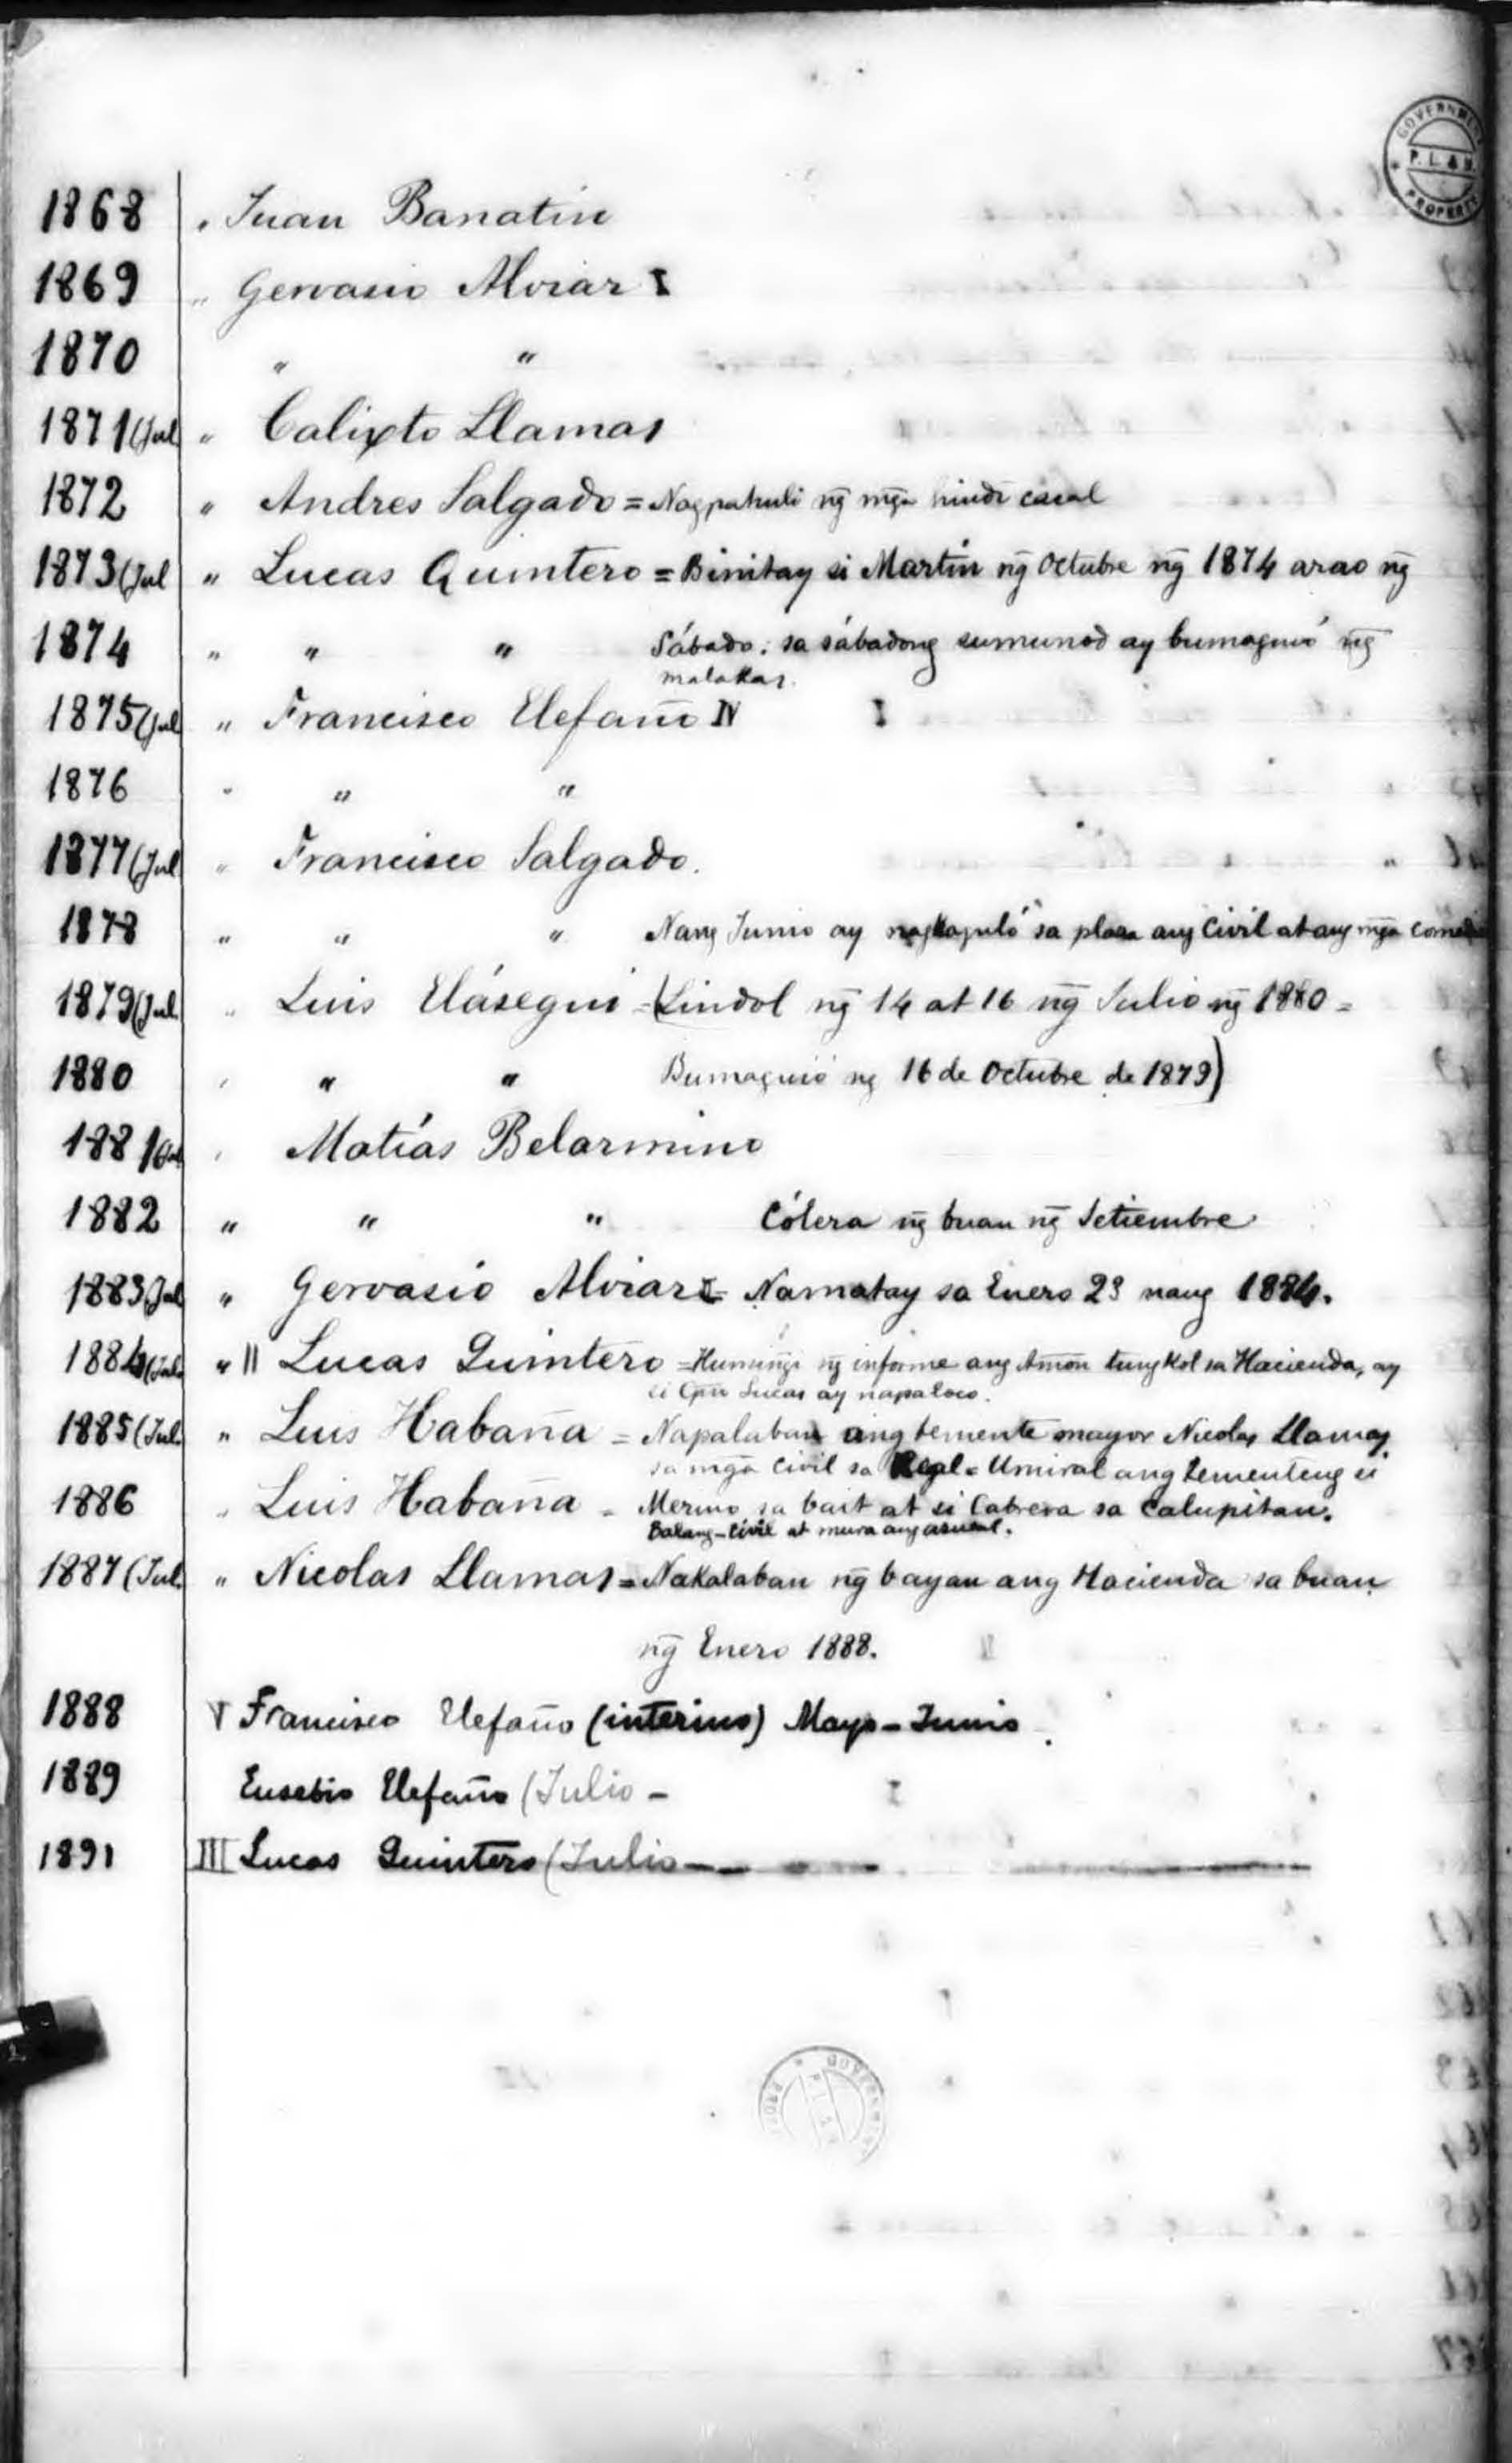 GOVERNMENT
P. L. & M.
PROPERTY
1868 „ Juan Banatin
1869 „ Gervasio Alviar I
1870 „ „
1871 (Jul „ Calixto Llamas
1872 „ Andres Salgado = Nagpahuli ng̃ mg̃a hindi casal
1873 (Jul „ Lucas Quintero = Binitay si Martin ng̃ Octubre ng̃ 1874 arao ng̃
1874 „ „ „ Sábado: sa sábadong sumunod ay bumaguió ng̃
malakas.
1875 (Jul „ Francisco Elefaño IV I
1876 „ „ „
1877 (Jul „ Francisco Salgado.
1878 „ „ „ Nang Junio ay nagkaguló sa plaza ang Civil at ang mg̃a
1879 (Jul. „ Luis Elásegui = (Lindol ng̃ 14 at 16 ng̃ Julio ng̃ 1880 =
1880 „ „ „ Bumaguió ng 16 de Octubre de 1879)
1881 „ Matías Belarmino
1882 „ „ „ Cólera ng̃ buan ng̃ Setiembre
1883 Jul „ Gervasio Alviar II = Namatay sa Enero 23 nang 1884.
1884 (Jul. „ II Lucas Quintero = Huming̃i ng̃ informe ang tungkol sa Hacienda, ay
si Cpn Lucas ay napaloco.
1885 (Jul. „ Luis Habaña = Napalaban ang teniente mayor Nicolas Llamas
sa mg̃a civil sa Real = Umiral ang tenienteng si
1886 „ Luis Habaña = Merino sa bait at si Cabrera sa Calupitan.
Balang-civil at mura ang asucal.
1887 (Jul. „ Nicolas Llamas = Nakalaban ng̃ bayan ang Hacienda sa buan
ng̃ Enero 1888.
1888 V Francisco Elefaño (interino) Mayo - Junio.
1889 Eusebio Elefaño (Julio -
1891 III Lucas Quintero (Julio —